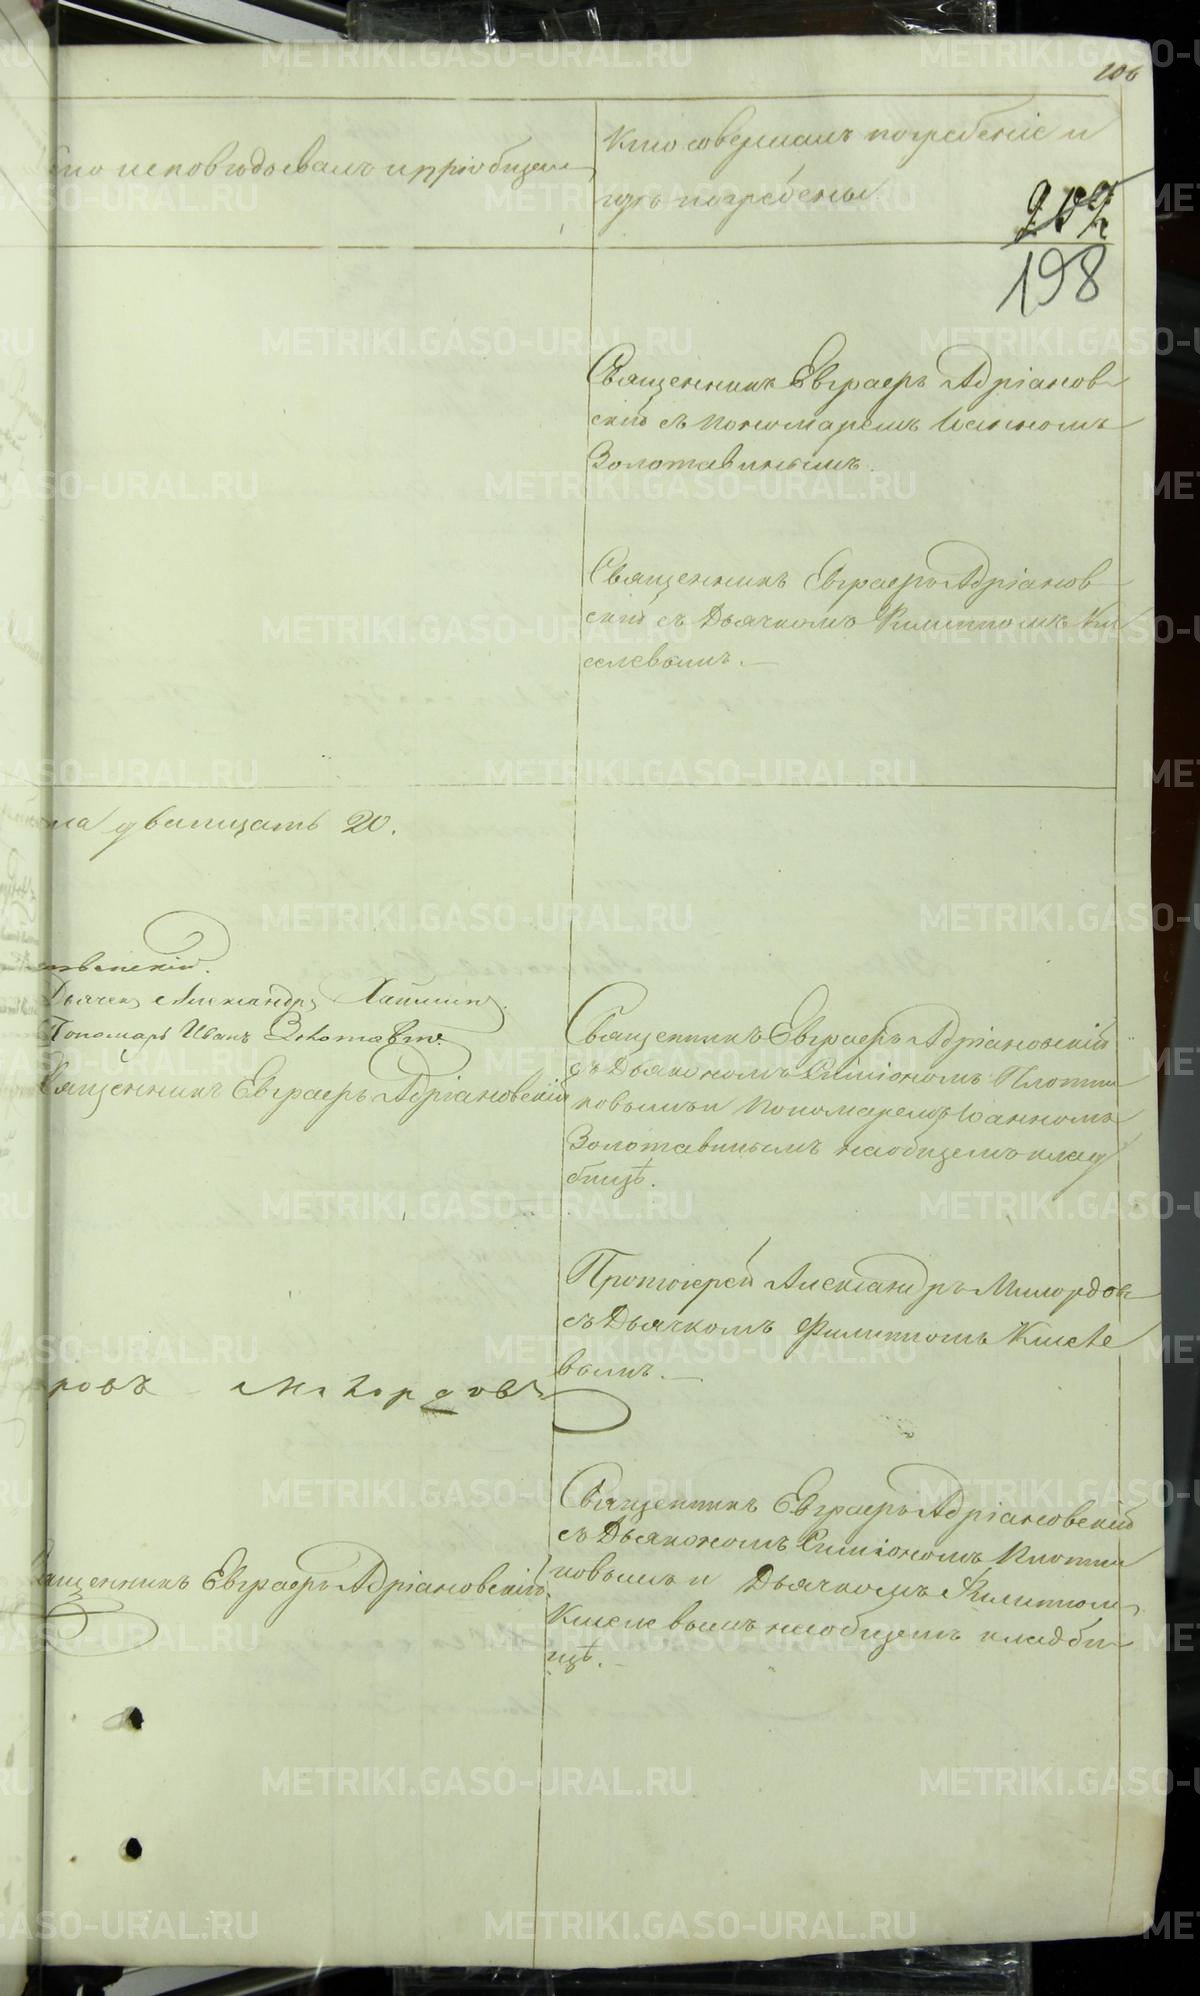 106
Кто исповѣдовалъ и пріобщалъ
Кто совершалъ погребеніе и
гдѣ погребены
207
198
Священникъ Евграфъ Адріанов
скій съ пономаремъ Іоанномъ
Золотавинымъ.
Священникъ Евграфъ Адріанов
скій съ Дьячкомъ Филиппомъ Ки
селевымъ.
двадцать 20.
Дьячекъ Александръ
Пономарь Иванъ Золотавинъ
Священникъ Евграфъ Адріановскій
Священникъ Евграфъ Адріановскій
съ Діакономъ Симіономъ Плотни
ковымъ и Пономаремъ Іоанномъ
Золотавинымъ на общемъ клад
бищѣ.
Протоіерей Александръ Милордовъ
съ Дьячкомъ Филиппомъ Кисѣле
вымъ.
ровъ Милордовъ
Священникъ Евграфъ Адріановскій
съ Діакономъ Симіономъ Плотни
ковымъ и Дьячкомъ Филиппомъ
Киселевымъ на общемъ кладби
щѣ.
Священникъ Евграфъ Адріановскій
METRIKI.GASO-URAL.RU